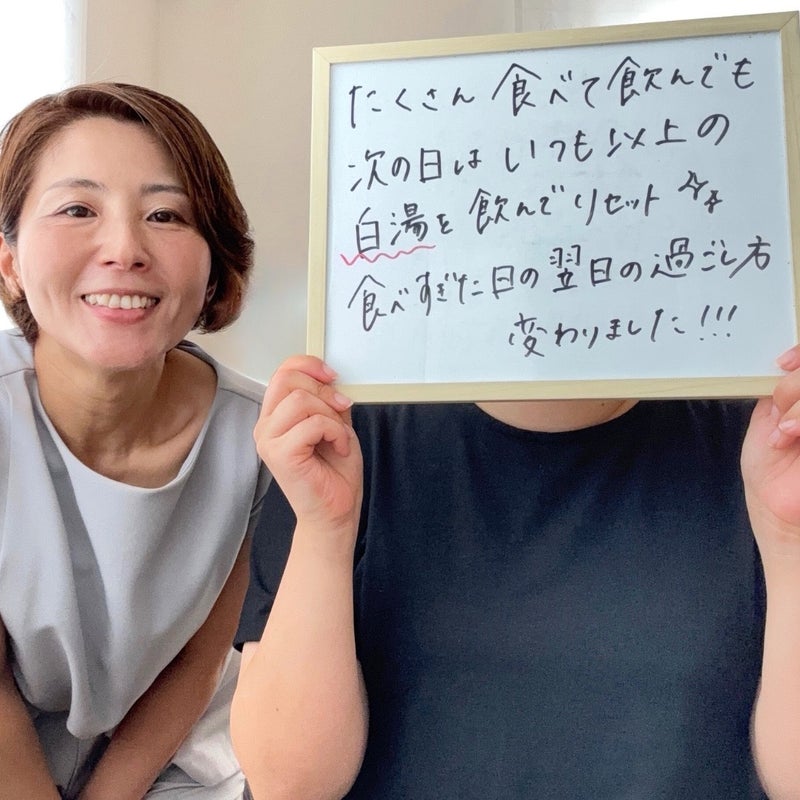 たくさん食べて飲んでも
次の日はいつも以上の
白湯を飲んでリセット
食べすぎた日の翌日の過ごし方
変わりました!!!